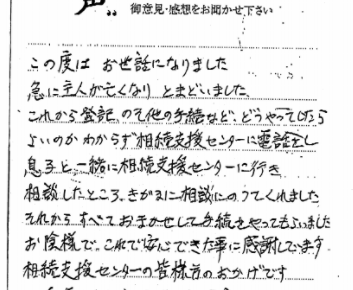 声
御意見・感想をお聞かせ下さい
この度は お世話になりました
急に主人が亡くなり とまどいました。
これから登記、その他の手続など、どうやってしたら
よいのかわからず相続支援センターに電話をし
息子と一緒に相続支援センターに行き
相談したところ、きがるに相談にのってくれました
それから すべておまかせして手続をやってもらいました
お陰様で、これで安心できた事に感謝しています
相続支援センターの皆様方のおかげです